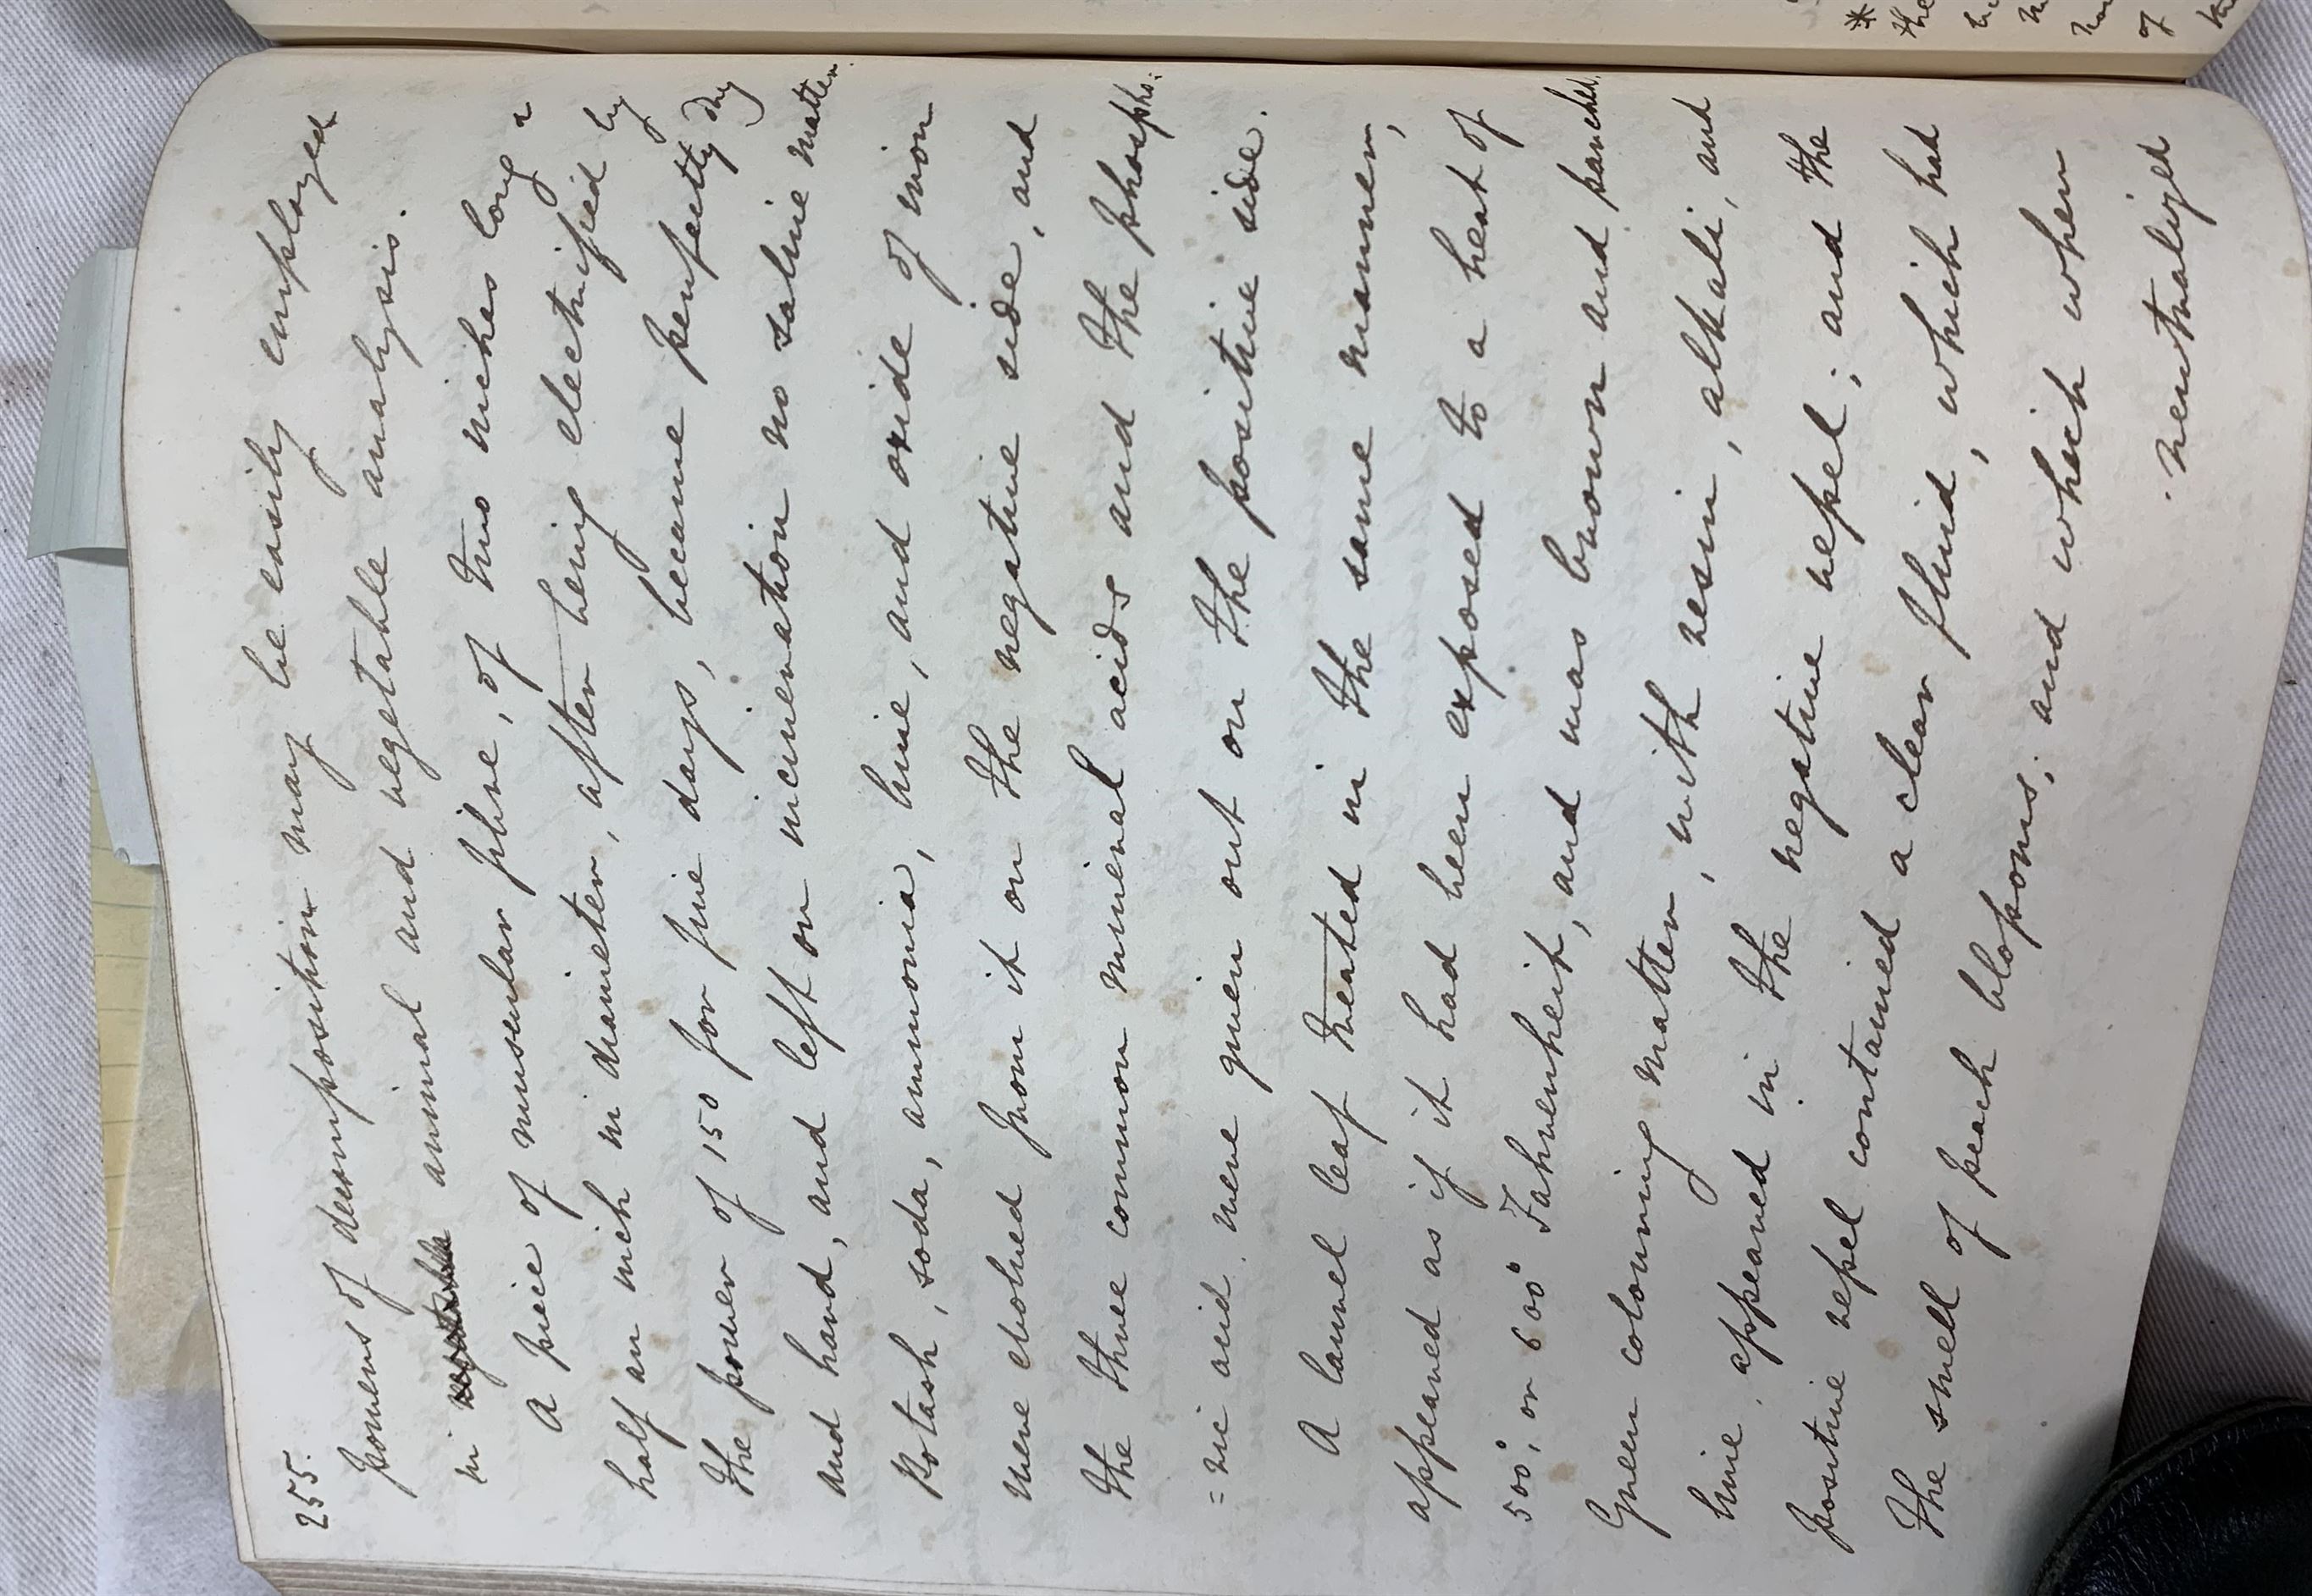 255.
powers of decomposition may be easily employed
in vegetable animal and vegetable analysis.
A piece of muscular fibre, of two inches long a
half an inch in diameter, after being electrified by
the power of 150 for five days, became perfectly dry
and hard, and left on incineration no saline matter.
Potash, soda, ammonia, lime, and oxide of iron
were evolved from it on the negative side, and
the three common mineral acids and the phospho:
=ric acid were given out on the positive side.
A laurel leaf treated in the same manner,
appeared as if it had been exposed to a heat of
500°, or 600° Fahrenheit, and was brown and parched.
Green colouring matter, with resin, alkali, and
lime, appeared in the negative vessel; and the
positive vessel contained a clear fluid, which had
the smell of peach blossoms; and which when
neutralized
*
the
of